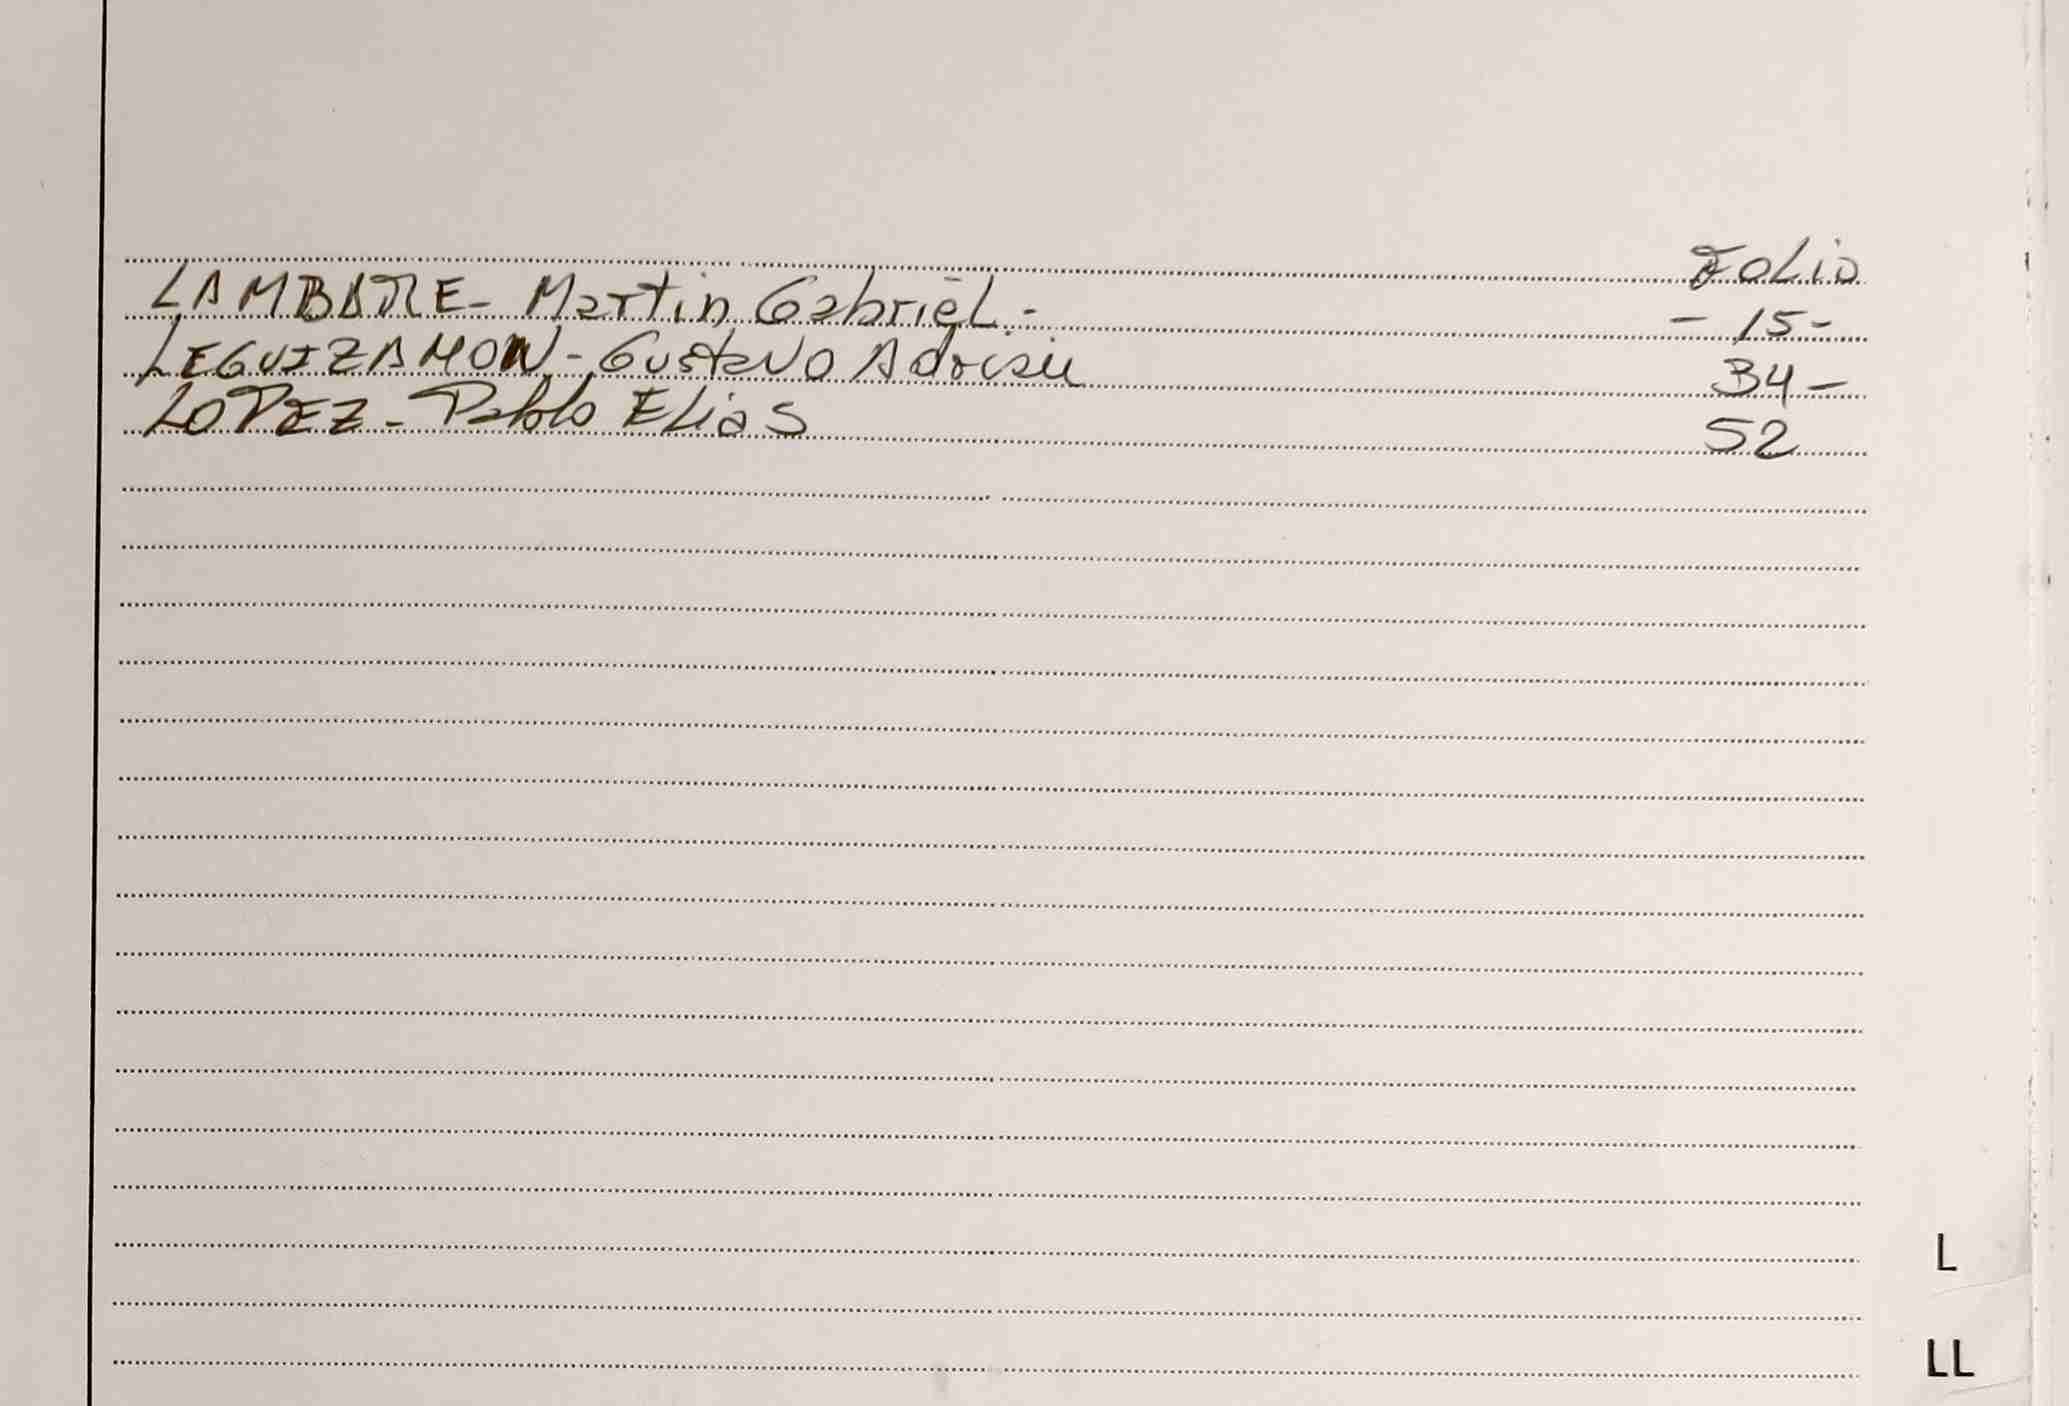 Folio
LAMBARE- Martin Gabriel.- - 15-
LEGUIZAMON- Gustavo Adrian 34-
LOPEZ- Pablo Elias 52
L
LL